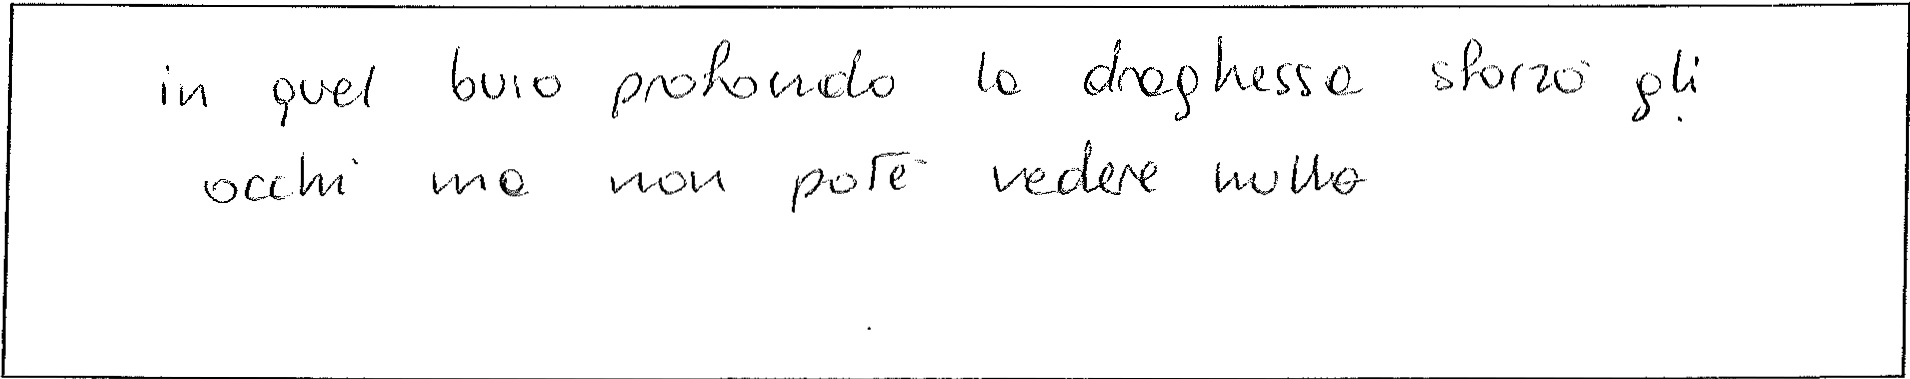 in quel buio profondo la draghessa sforzò gli
occhi ma non potè vedere nulla